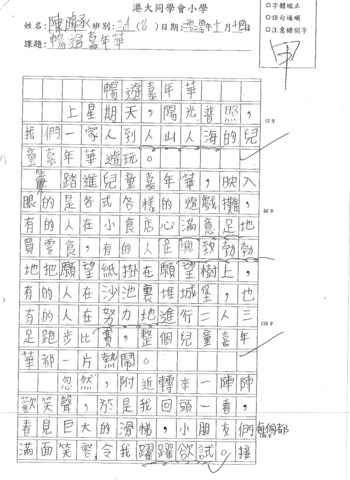 港大同學會小學
○字體端正
○語句通順
○注意錯別字
姓名：陳 承 班別： (8) 日期： 年十一月十四日
課題：暢遊嘉年華
甲
暢遊嘉年華
上星期天，陽光普照，
我們一家人到人山人海的兒
童嘉年華遊玩。
當踏進兒童嘉年華，映入
眼的是各式各樣的遊戲攤，
有的人在小食店心滿意足地
買零食，有的人在興致勃勃
地把願望紙掛在願望樹上，
有的人在沙池裏堆城堡，也
有的人在努力地進行二人三
足跑步比賽，整個兒童嘉年
華都一片熱鬧。
忽然，附近轉來一陣陣
歡笑聲，於是我回頭一看，
看見巨大的滑梯，小朋友們每個都
滿面笑容，令我躍躍欲試。接